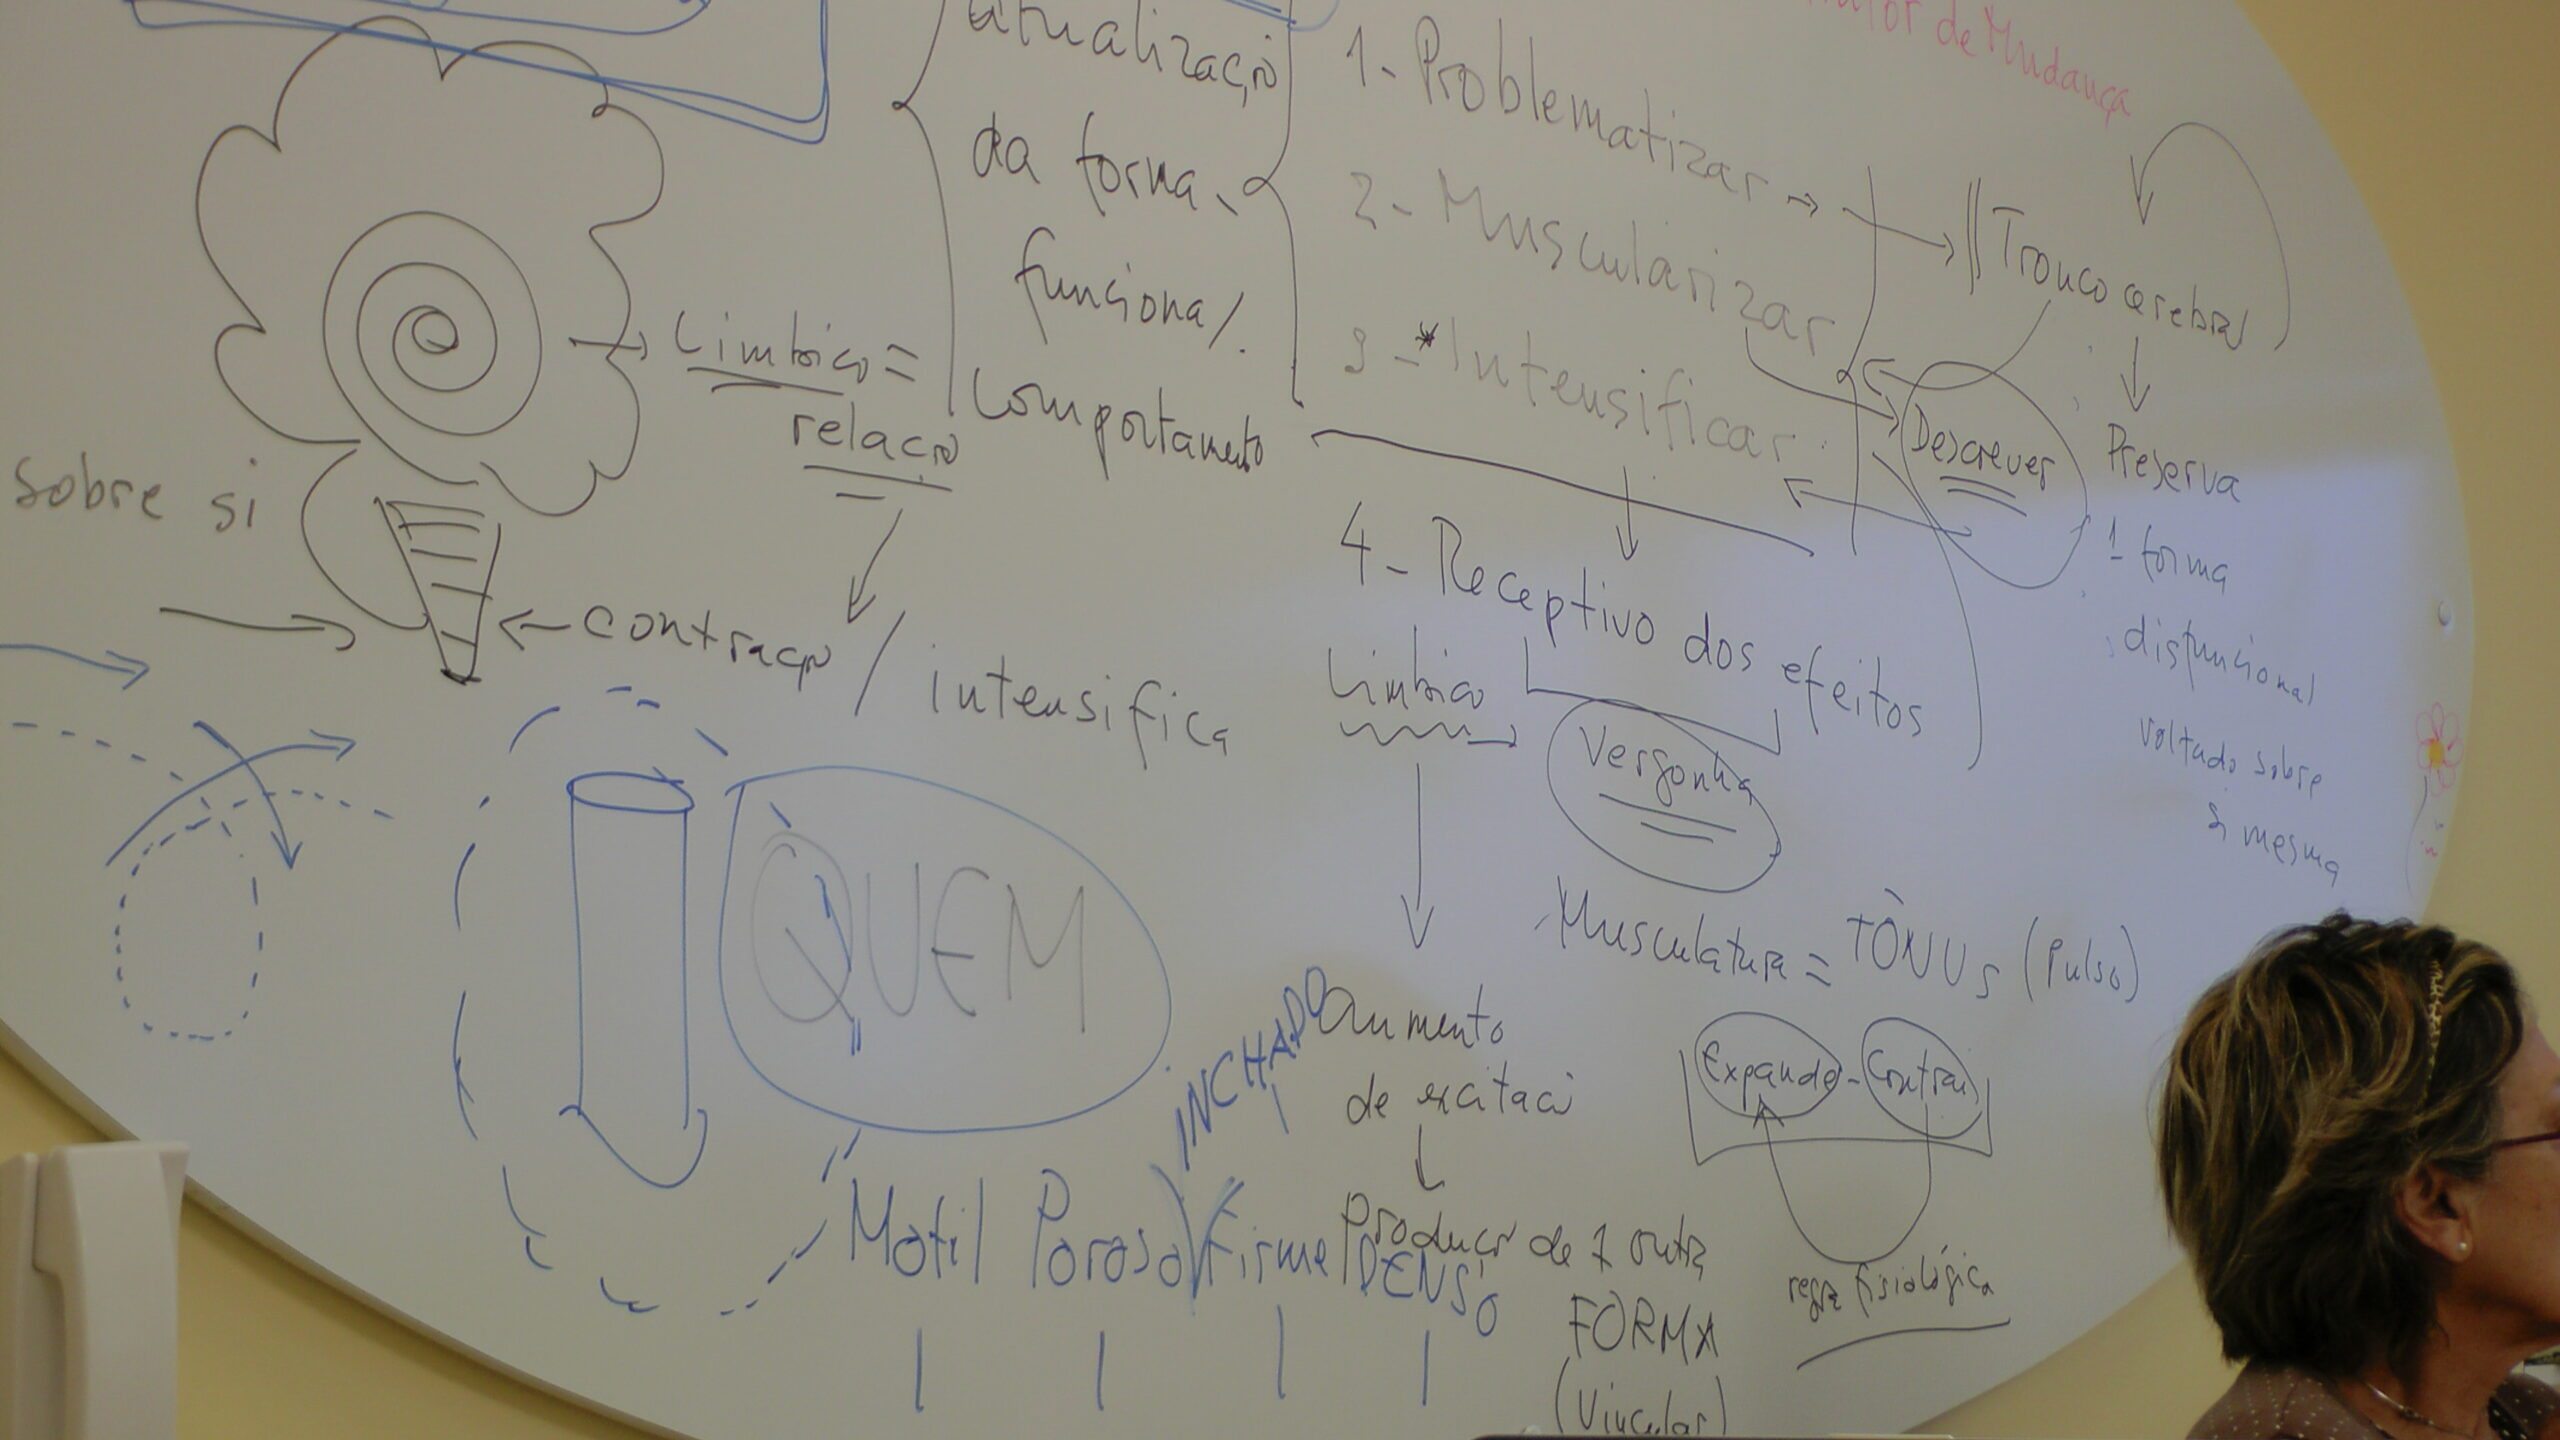 de Mudança
atualização
da forma
funcional.
comportamento
1- Problematizar →
2- Muscularizar
3-*Intensificar
Tronco cerebral
Preserva
1 forma
disfuncional
voltado sobre
si mesma
Descrever
Limbico =
relação
sobre si
contração / intensifica
4- Receptivo dos efeitos
Limbico
Vergonha
Musculatura = TÔNUS (Pulso)
Expande - Contrai
regra fisiológica
QUEM
aumento
de excitaçã
Produçã de 1 outra
FORMA
(Vincular)
INCHADO
Motil Poroso Firme DENSO